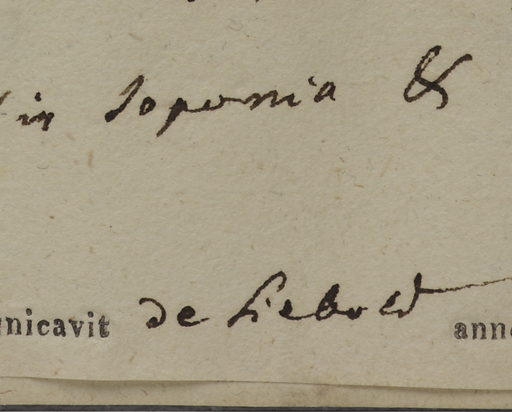 in Japonia &
nicavit de Siebold ann